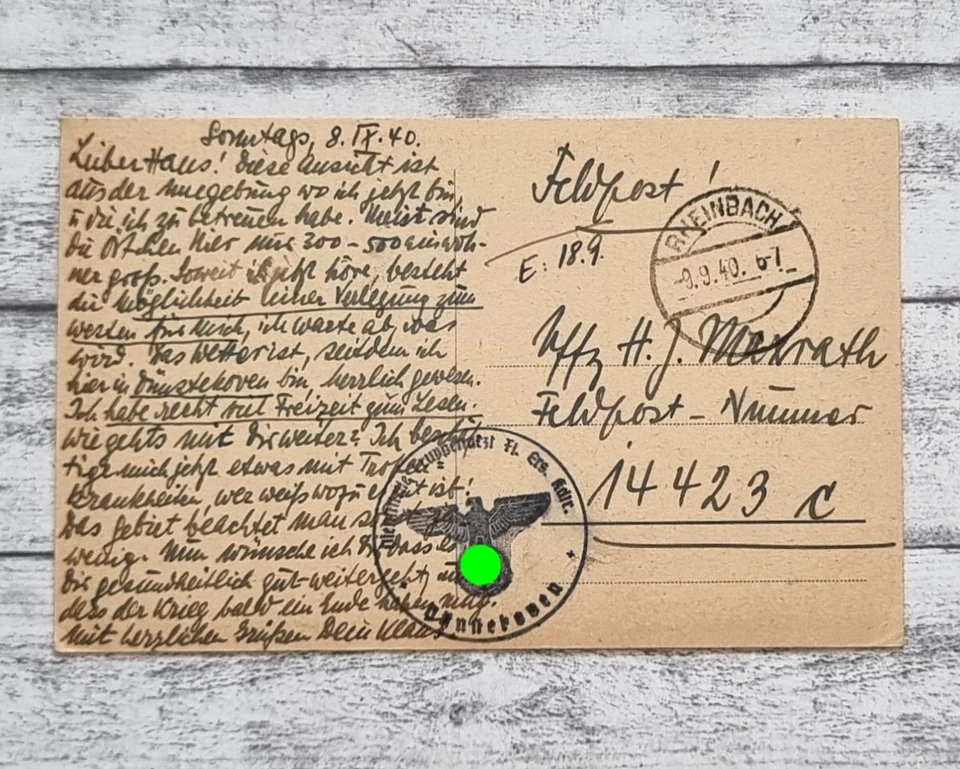 Sonntags, 8. IX. 40.
Lieber Hans! Diese Ansicht ist
aus der Umgebung wo ich jetzt bin
u. die ich zu betreuen habe. Meist sind
die Örtchen hier nur 300 – 500 einwoh-
ner groß. Soweit ich jetzt höre, besteht
die Möglichkeit einer Verlegung zum
westen für mich, ich warte ab, was
wird. Das Wetter ist, seitdem ich
hier in Dünstekoven bin herrlich gewesen.
Ich habe recht viel Freizeit zum Lesen.
wie gehts mit Dir weiter? Ich beschäf
tige mich jetzt etwas mit Tropen=
krankheiten, wer weiß wozu es gut ist!
Das gebiet beachtet man sonst
wenig. Nun wünsche ich Dir, dass es
Dir gesundheitlich gut weitergeht, und
dass der Krieg bald ein Ende haben mag.
mit herzlichen Grüßen Dein Klaus.
Feldpost!
E: 18.9.
RHEINBACH
-9.9.40. 6-7
Uffz H. J. Manrath
Feldpost – Nummer
14423 C
Truppenarzt Fl. Ers.